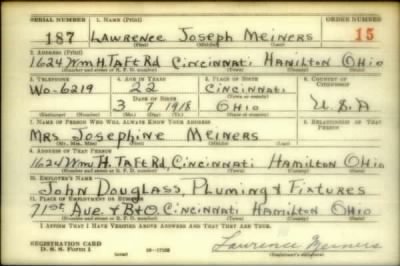 SERIAL NUMBER 1. NAME (Print) ORDER NUMBER
187 LAWRENCE JOSEPH MEINERS 15
(First) (Middle) (Last)
2. ADDRESS (Print)
1624 Wm H. TAFT Rd Cincinnati Hamilton Ohio
(Number and street or R. F. D. number) (Town) (County) (State)
3. TELEPHONE 4. AGE IN YEARS 5. PLACE OF BIRTH 6. COUNTRY OF CITIZENSHIP
Wo-6219 22 Cincinnati
DATE OF BIRTH
3 7 1918 OHIO U.S.A
(Exchange) (Number) (Mo.) (Day) (Yr.) (State or country)
7. NAME OF PERSON WHO WILL ALWAYS KNOW YOUR ADDRESS 8. RELATIONSHIP OF THAT PERSON
MRS JOSEPHINE MEINERS
(Mr., Mrs., Miss) (First) (Middle) (Last)
9. ADDRESS OF THAT PERSON
1624 Wm. H. TAFT Rd, Cincinnati Hamilton Ohio
(Number and street or R. F. D. number) (Town) (County) (State)
10. EMPLOYER'S NAME
John Douglass, Pluming & Fixtures
11. PLACE OF EMPLOYMENT OR BUSINESS
71st Ave & B&O. Cincinnati Hamilton Ohio
(Number and street or R. F. D. number) (Town) (County) (State)
I AFFIRM THAT I HAVE VERIFIED ABOVE ANSWERS AND THAT THEY ARE TRUE.
REGISTRATION CARD
D. S. S. FORM 1 Lawrence Meiners
(Registrant's signature)